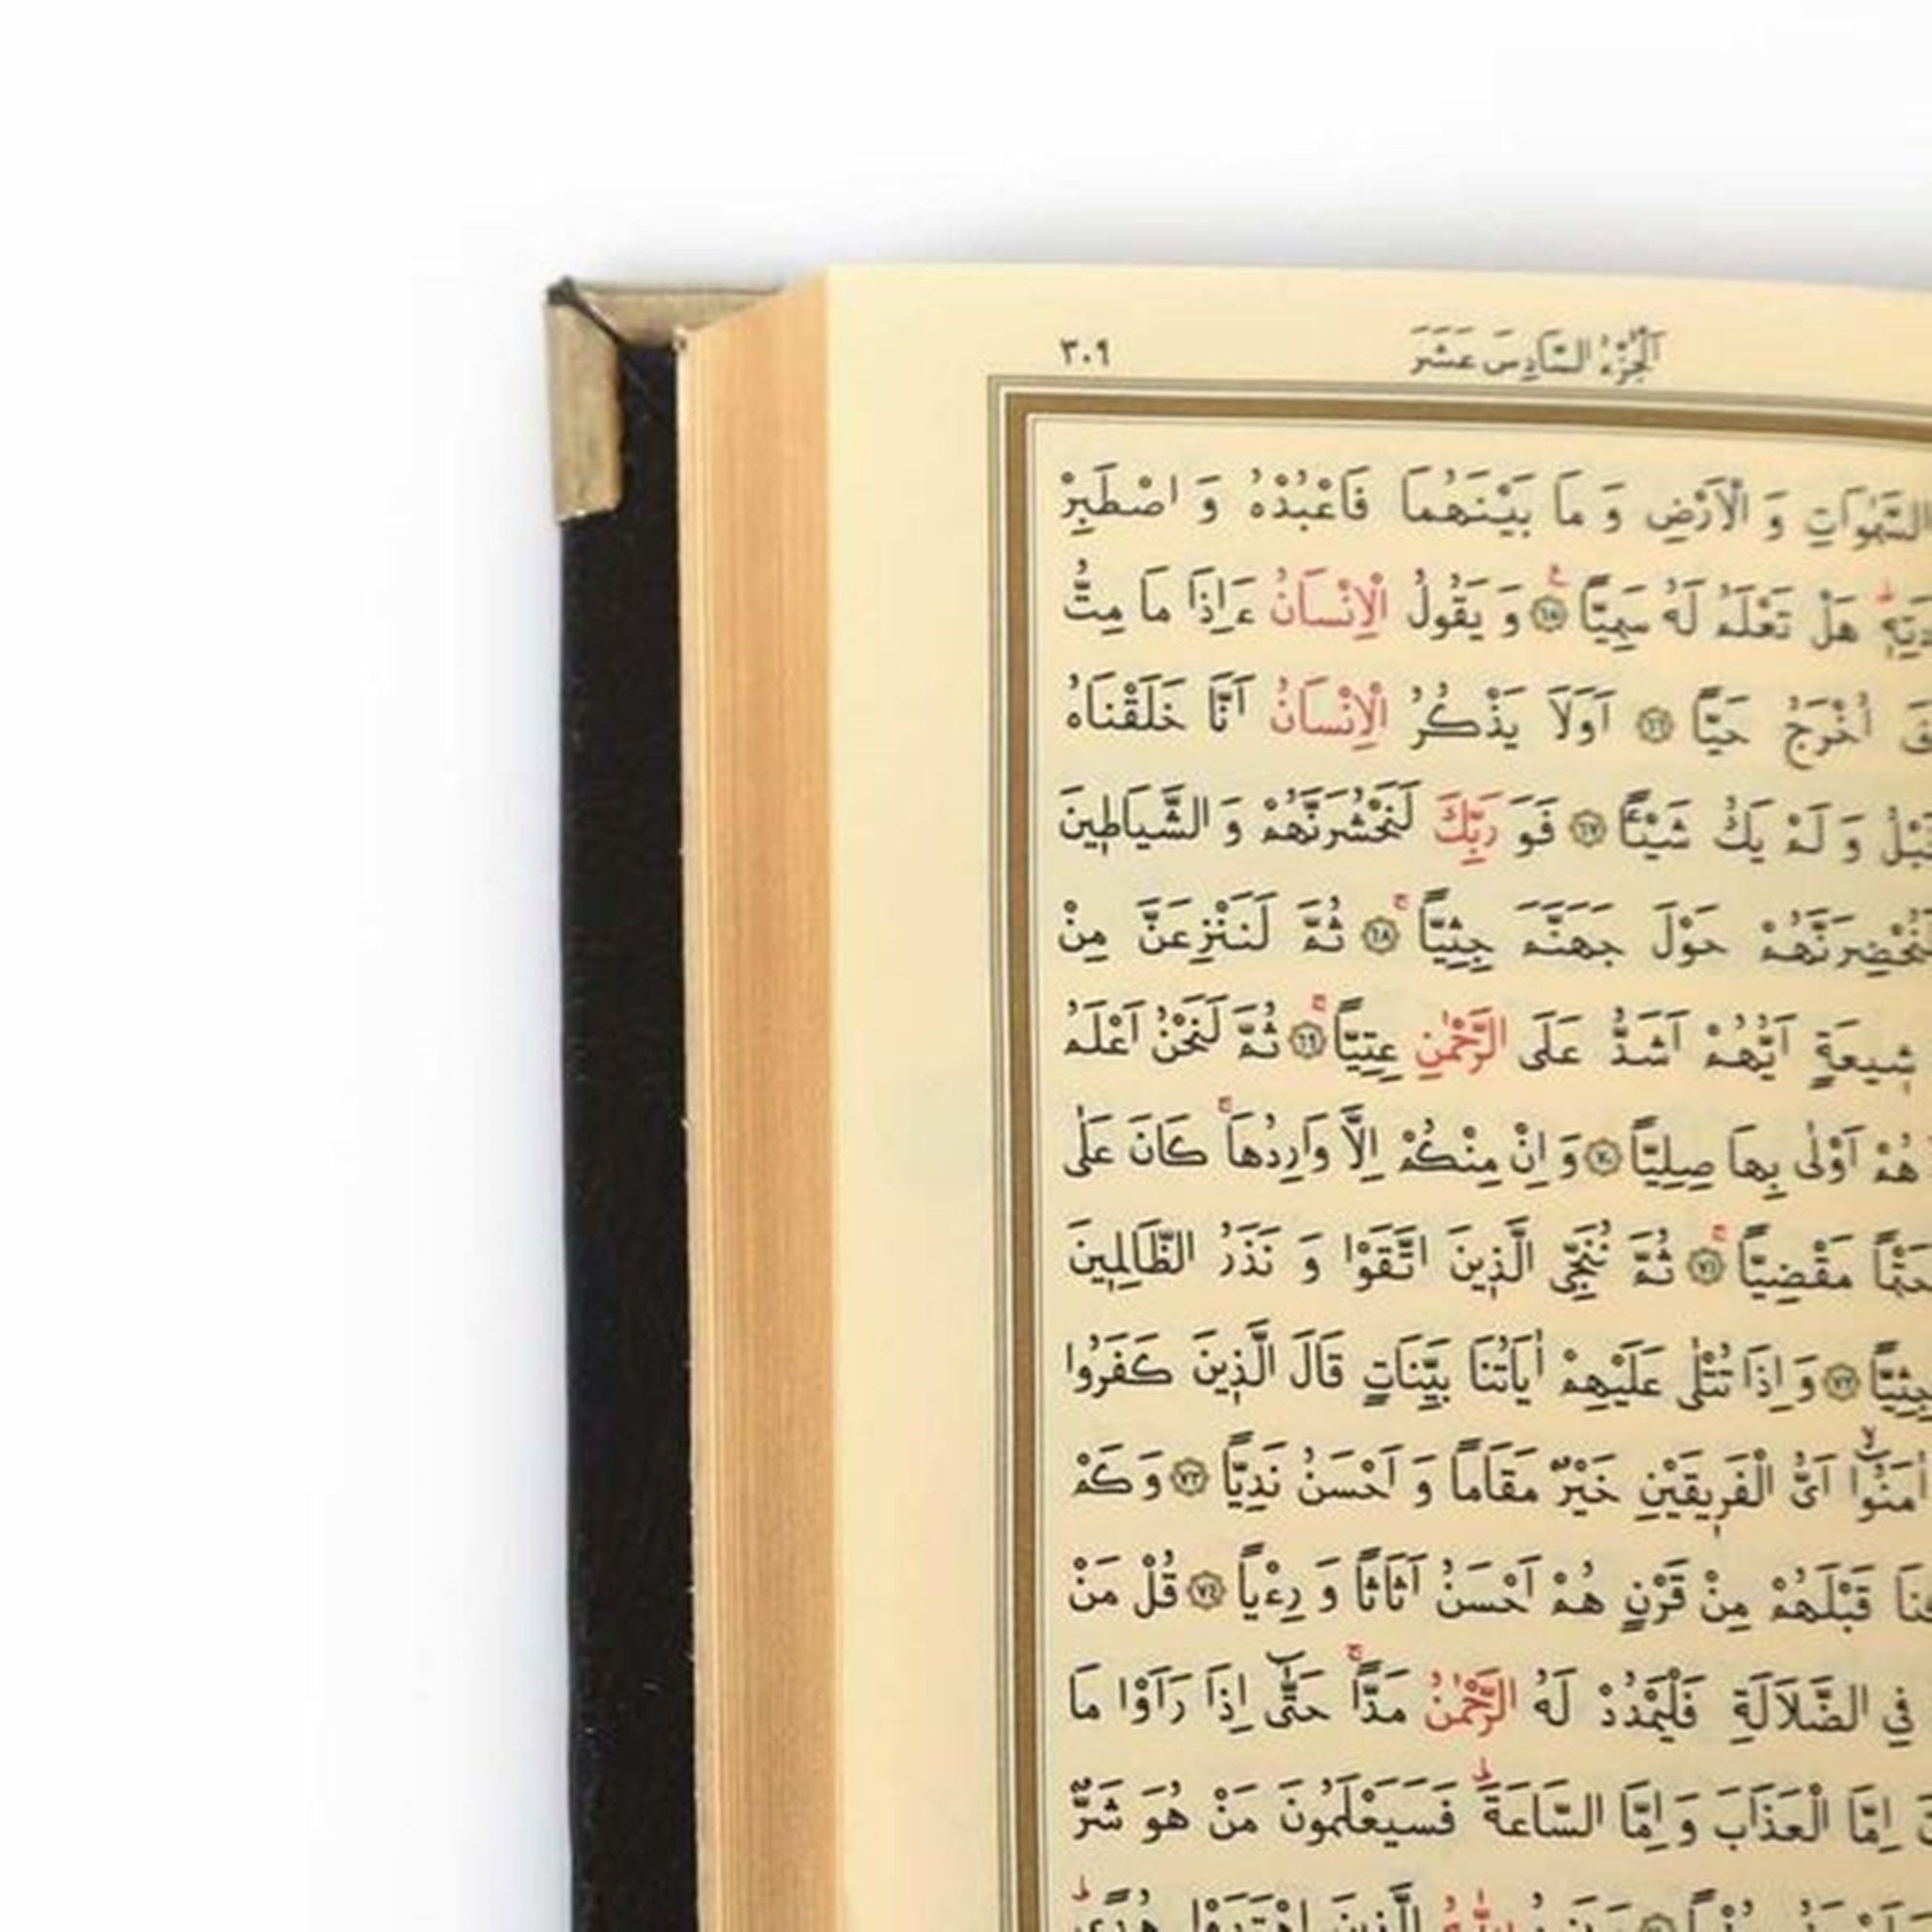 اَلْجُزْءُ السَّادِسَ عَشَرَ
٣٠٩
السَّمٰوَاتِ وَ الْاَرْضِ وَ مَا بَيْنَهُمَا فَاعْبُدْهُ وَ اصْطَبِرْ
هَلْ تَعْلَمُ لَهُ سَمِيًّا ۝٦٥ وَ يَقُولُ الْاِنْسَانُ ءَاِذَا مَا مِتُّ
اُخْرَجُ حَيًّا ۝٦٦ اَوَلَا يَذْكُرُ الْاِنْسَانُ اَنَّا خَلَقْنَاهُ
وَ لَمْ يَكُ شَيْئًا ۝٦٧ فَوَ رَبِّكَ لَنَحْشُرَنَّهُمْ وَ الشَّيَاطٖينَ
حَوْلَ جَهَنَّمَ جِثِيًّا ۝٦٨ ثُمَّ لَنَنْزِعَنَّ مِنْ
شٖيعَةٍ اَيُّهُمْ اَشَدُّ عَلَى الرَّحْمٰنِ عِتِيًّا ۝٦٩ ثُمَّ لَنَحْنُ اَعْلَمُ
هُمْ اَوْلٰى بِهَا صِلِيًّا ۝٧٠ وَ اِنْ مِنْكُمْ اِلَّا وَارِدُهَا كَانَ عَلٰى
حَتْمًا مَقْضِيًّا ۝٧١ ثُمَّ نُنَجِّى الَّذٖينَ اتَّقَوْا وَ نَذَرُ الظَّالِمٖينَ
جِثِيًّا ۝٧٢ وَ اِذَا تُتْلٰى عَلَيْهِمْ اٰيَاتُنَا بَيِّنَاتٍ قَالَ الَّذٖينَ كَفَرُوا
اٰمَنُوا اَىُّ الْفَرٖيقَيْنِ خَيْرٌ مَقَامًا وَ اَحْسَنُ نَدِيًّا ۝٧٣ وَ كَمْ
قَبْلَهُمْ مِنْ قَرْنٍ هُمْ اَحْسَنُ اَثَاثًا وَ رِءْيًا ۝٧٤ قُلْ مَنْ
فِى الضَّلَالَةِ فَلْيَمْدُدْ لَهُ الرَّحْمٰنُ مَدًّا حَتّٰٓى اِذَا رَاَوْا مَا
اِمَّا الْعَذَابَ وَ اِمَّا السَّاعَةَ فَسَيَعْلَمُونَ مَنْ هُوَ شَرٌّ
الَّذٖينَ اهْتَدَوْا هُدًى